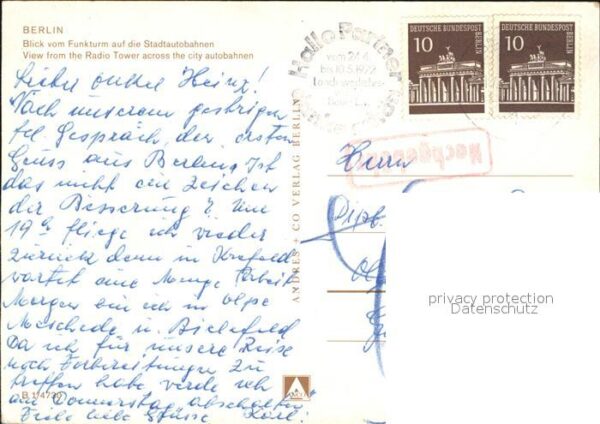 BERLIN
Blick vom Funkturm auf die Stadtautobahnen
View from the Radio Tower across the city autobahnen
Lieber Onkel Heinz!
Nach unserem gestrigen
Tel Gespräch, den ersten
Gruss aus Berlin. Ist
das nicht ein Zeichen
der Besserung? Um
19 h fliege ich wieder
zurück denn in Krefeld
wartet eine Menge Arbeit
Morgen bin ich in Olpe
Meschede u. Bielefeld
Da ich für unsere Reise
noch Vorbereitungen zu
treffen habe werde ich
am Donnerstag abschalten
Viele liebe Grüsse
B 1/4739
ANDRES + CO VERLAG BERLIN
Hallo Partner
vom 24.4.
bis 10.5.1972
10 DEUTSCHE BUNDESPOST BERLIN
10 DEUTSCHE BUNDESPOST BERLIN
Nachgebühr
Herrn
Dipl.
privacy protection
Datenschutz